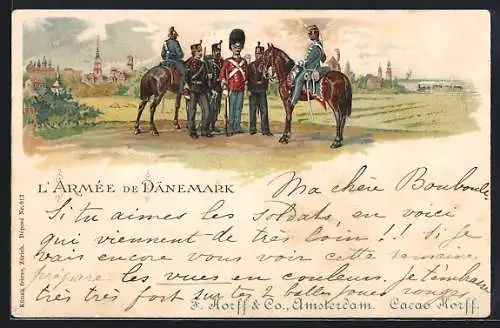 L'ARMÉE DE DÄNEMARK
Ma chère Bouboule
Si tu aimes les soldats, en voici
qui viennent de très loin!! Si je
vais encore vous voir cette semaine
prépare les vues en couleurs, je t'embrasse
très très fort sur tes 2 belles joues rouges
F. Korff & Co., Amsterdam. Cacao Korff.
Künzli, frères, Zürich. Déposé Nr. 913